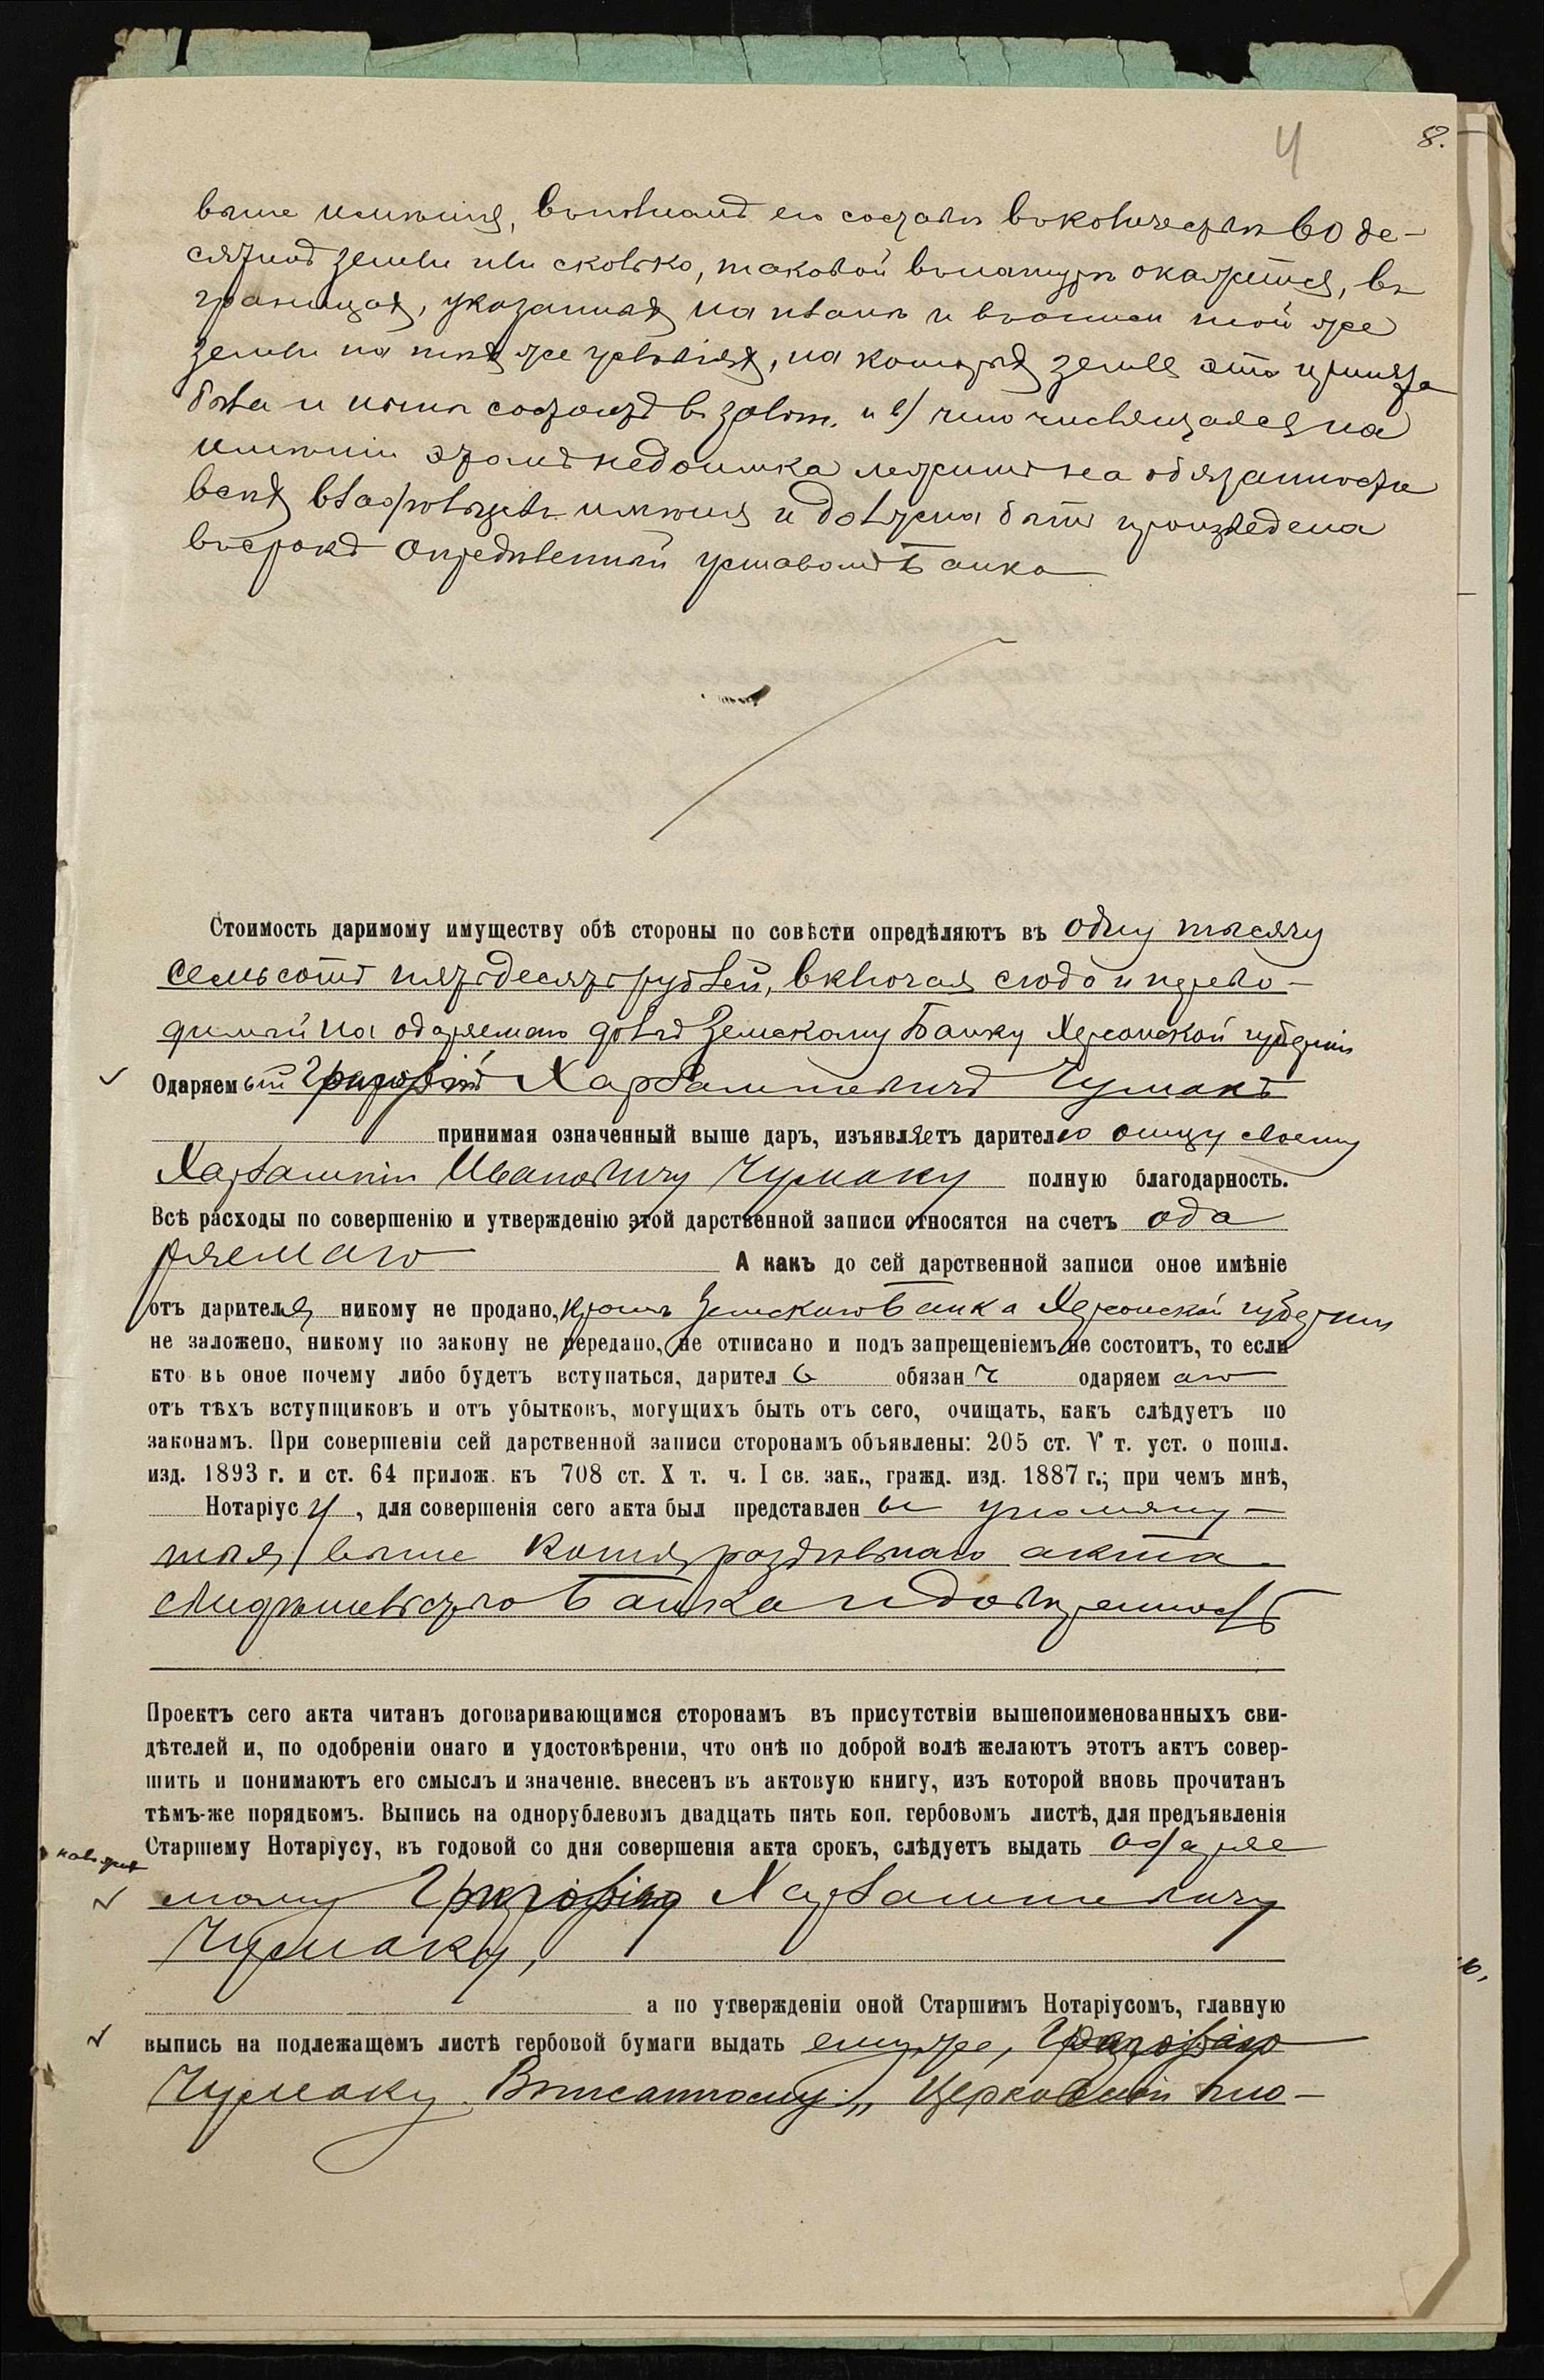 4
8.
выше имѣнія, въ полномъ его составѣ въ количествѣ 60 де-
сятинъ земли или сколько таковой въ натурѣ окажется, въ
границахъ, указанныхъ на планѣ и въ описи той же
земли на тѣхъ же условіяхъ, на которыхъ земля эта принята
была и нынѣ состоитъ въ залогѣ. и в/ что числящаяся на
имѣніи этомъ недоимка лежитъ на обязанности
всѣхъ владѣльцевъ имѣнія и должна быть произведена
въ срокъ опредѣленный уставомъ Банка
Стоимость даримому имуществу обѣ стороны по совѣсти опредѣляютъ въ одну тысячу
семьсотъ пятьдесятъ рублей, включая сюда и перево-
димый на одаряемаго долгъ Земскому Банку Херсонской губерніи
Одаряемый Григорій Харлампіевичъ Чумакъ
принимая означенный выше даръ, изъявляетъ дарителю отцу своему
Харлампію Ивановичу Чумаку полную благодарность.
Всѣ расходы по совершенію и утвержденію этой дарственной записи относятся на счетъ ода
ряемаго А какъ до сей дарственной записи оное имѣніе
отъ дарителя никому не продано, кромѣ Земскаго Банка Херсонской губерніи
не заложено, никому по закону не передано, не отписано и подъ запрещеніемъ не состоитъ, то если
кто въ оное почему либо будетъ вступаться, дарител ь обязан ъ одаряем аго
отъ тѣхъ вступщиковъ и отъ убытковъ, могущихъ быть отъ сего, очищать, какъ слѣдуетъ по
законамъ. При совершеніи сей дарственной записи сторонамъ объявлены: 205 ст. V т. уст. о пошл.
изд. 1893 г. и ст. 64 прилож. къ 708 ст. X т. ч. I св. зак., гражд. изд. 1887 г.; при чемъ мнѣ,
Нотаріусу, для совершенія сего акта былъ представлен ы упомяну-
тыя выше копія раздѣльнаго акта
свидѣтельство Банка и довѣренность
Проектъ сего акта читанъ договаривающимся сторонамъ въ присутствіи вышепоименованныхъ сви-
дѣтелей и, по одобреніи онаго и удостовѣреніи, что онѣ по доброй волѣ желаютъ этотъ актъ совер-
шить и понимаютъ его смыслъ и значеніе. внесенъ въ актовую книгу, изъ которой вновь прочитанъ
тѣмъ-же порядкомъ. Выпись на однорублевомъ двадцать пять коп. гербовомъ листѣ, для предъявленія
Старшему Нотаріусу, въ годовой со дня совершенія акта срокъ, слѣдуетъ выдать одаряе
мому Григорію Харлампіевичу
Чумаку,
а по утвержденіи оной Старшимъ Нотаріусомъ, главную
выпись на подлежащемъ листѣ гербовой бумаги выдать ему же, Григорію
Чумаку. Вписанному: „Церковной